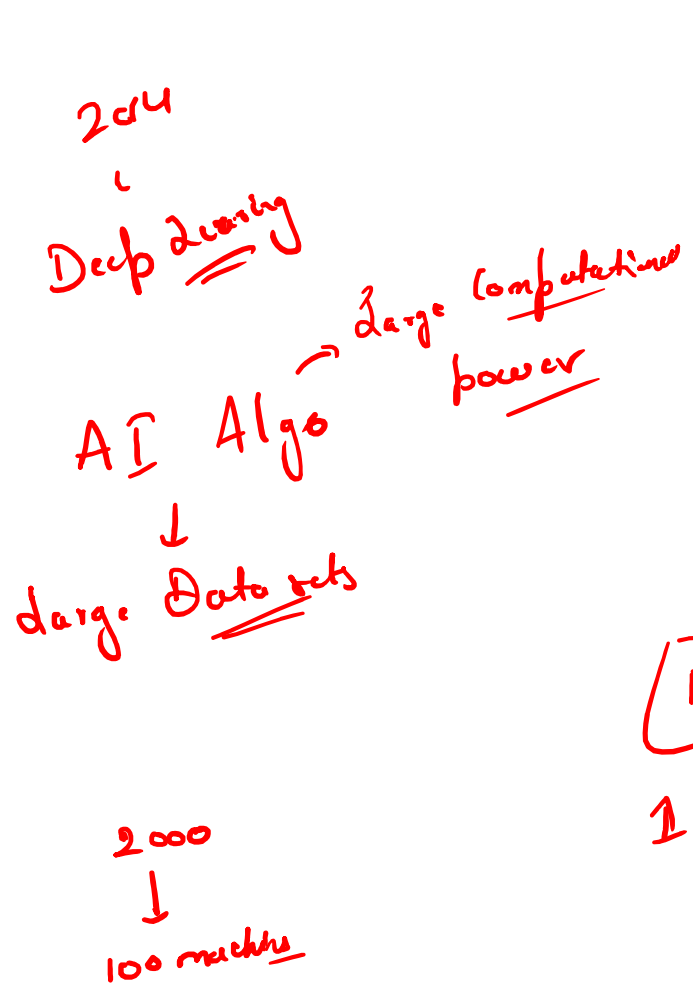 2014
Deep Learning
Large Computational
power
AI Algo
Large Data sets
2000
100 machins